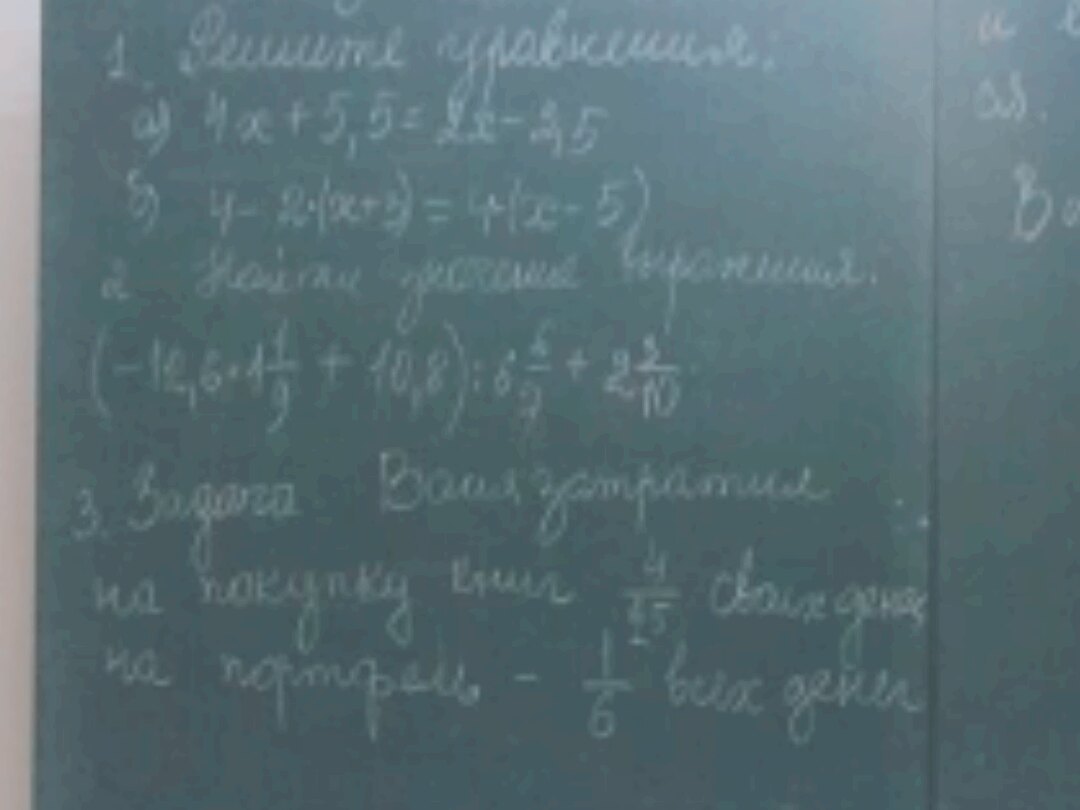 1. Решите уравнения:
а) 4x + 5,5 = 2x - 2,5
б) 4 - 2·(x+3) = 4·(x - 5)
2 Найти значения выражения.
(-12,6·1 1/9 + 10,8) : 6 6/7 + 2 3/10
3. Задача Ваня затратил
на покупку книг 4/15 своих денег
на портфель - 1/6 всех денег
и
В